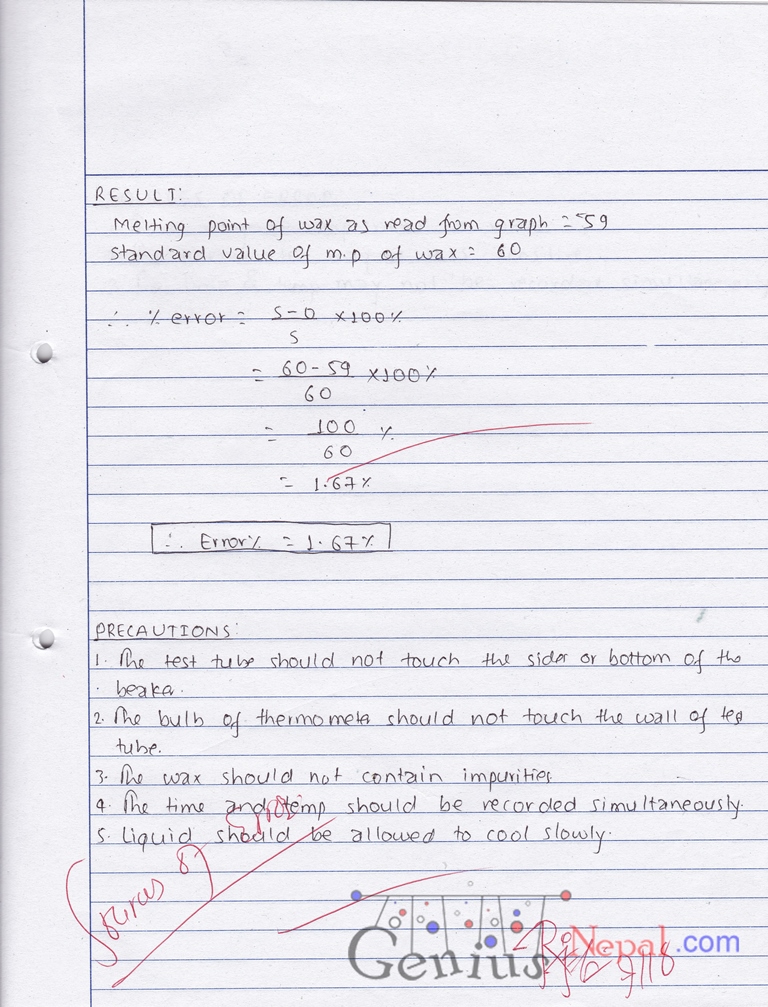 RESULT:
Melting point of wax as read from graph = 59
Standard value of m.p of wax = 60
∴ % error = S-O/S ×100%
= 60-59/60 ×100%
= 100/60 %
= 1.67%
∴ Error% = 1.67%
PRECAUTIONS:
1. The test tube should not touch the sides or bottom of the
beaker.
2. The bulb of thermometer should not touch the wall of test
tube.
3. The wax should not contain impurities.
4. The time and temp should be recorded simultaneously.
5. Liquid should be allowed to cool slowly.
Sources of
Error
GeniusNepal.com